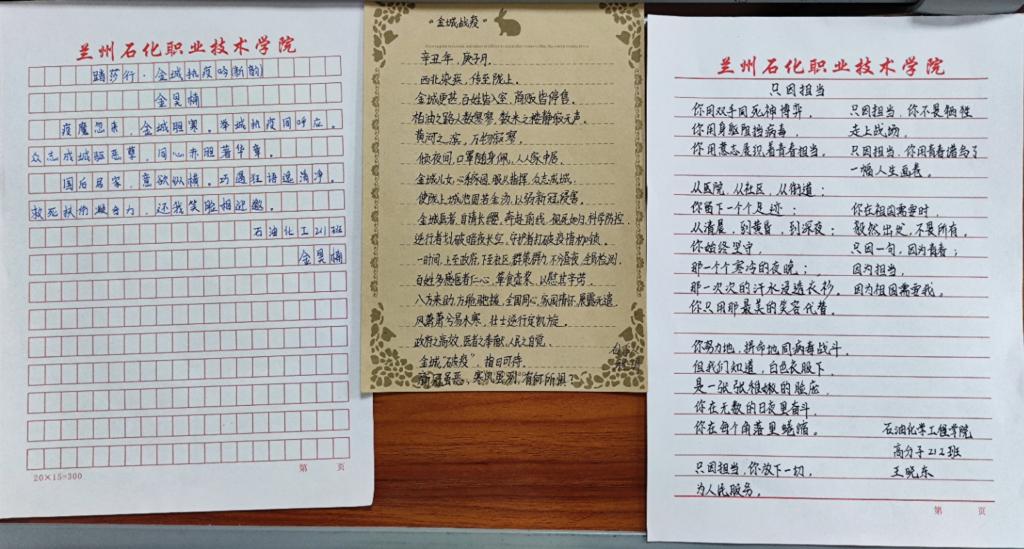 兰州石化职业技术学院
踏莎行·金城抗疫吟新韵
金昊楠
疫魔忽来，金城胆寒。举城抗疫同呼应。
众志成城驱恶孽，同心赤胆著华章。
困后居家，意欲纵横。巧遇狂语遥清净。
救死扶伤凝合力，还我笑脸相迎邀。
石油化工211班
金昊楠
20×15=300
第 页
“金城战疫”
辛丑年，庚子月。
西北染疾，传至陇上。
金城更甚，百姓皆入室，商贩皆停售。
柏油之路人数寥寥，数木之楼静似无声。
黄河之滨，万物寂寥。
倏夜间，口罩随身佩，人人家中居。
金城儿女，心系家园，服从指挥，众志成城。
使陇上城池固若金汤，以弱新冠侵害。
逆行者划破暗夜长空，守护者打破疫情枷锁。
一时间，上至政府，下至社区，群策群力，不分昼夜，全员检测。
百姓多感医者仁心，箪食壶浆，以慰其辛劳。
八方来助，方舱驰援，全国同心，家国情怀，展露无遗。
风萧萧兮易水寒，壮士逆行定凯旋。
政府之高效，医者之奉献，人民之自觉，
金城“破疫”，指日可待。
新冠虽恶，寒风虽冽，有何所惧？
兰州石化职业技术学院
只因担当
你用双手同死神博弈，
你用身躯阻挡病毒，
你用意志展现着青春担当，
从医院，从社区，从街道；
你留下一个个足迹；
从清晨，到黄昏，到深夜；
你始终坚守，
那一个个寒冷的夜晚；
那一次次的汗水浸透衣衫，
你只用那最美的笑容代替。
你努力地，拼命地同病毒战斗，
但我们知道，白色衣服下，
是一张张稚嫩的脸庞，
你在无数的日夜里奋斗，
你在每个角落里蜷缩。
只因担当，你放下一切，
为人民服务。
只因担当，你不是牺牲
走上战场，
只因担当，你用青春谱写了
一幅人生画卷。
你在祖国需要时，
毅然出发，不是所有，
只因一句，因为青春；
因为担当，
因为祖国需要我。
石油化学工程学院
高分子212班
王晓东
第 页